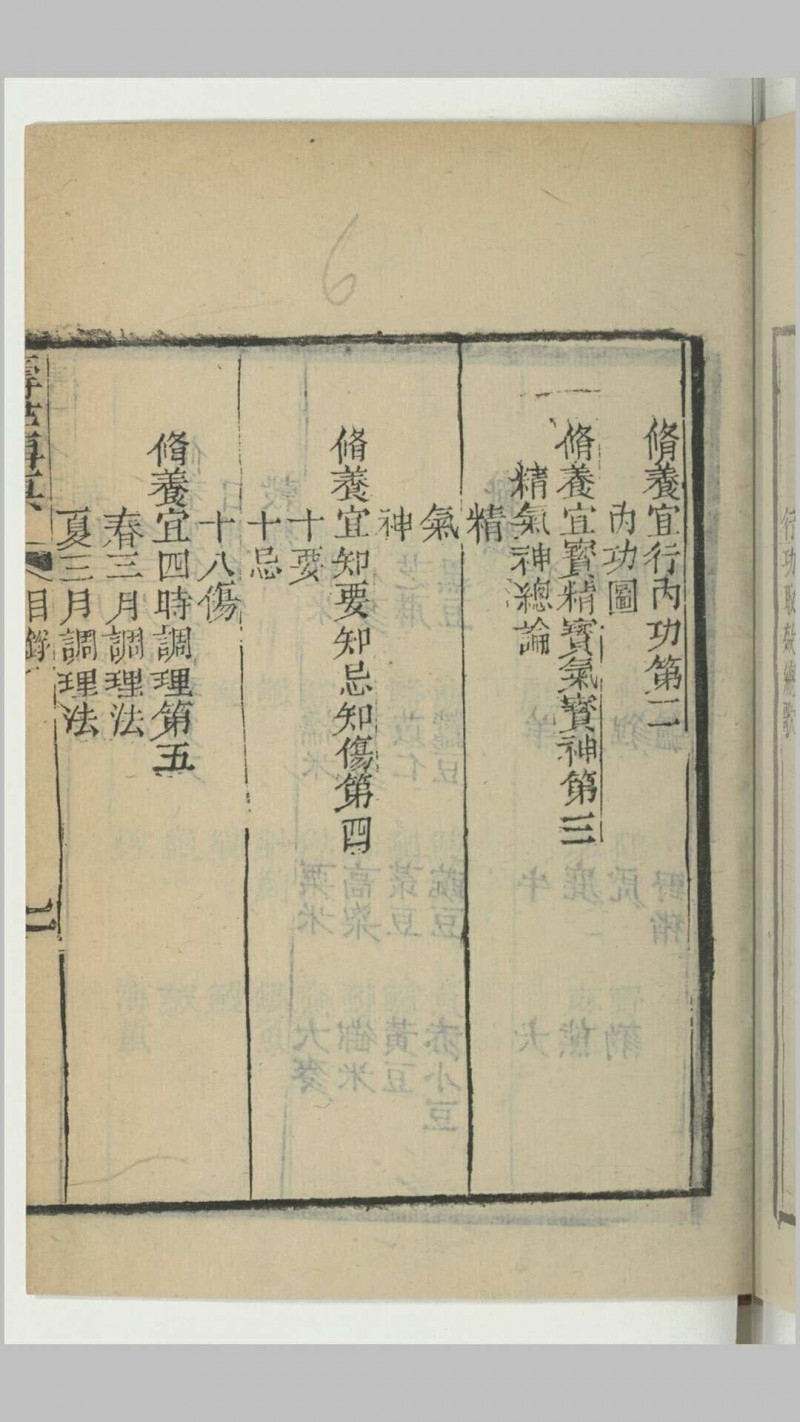 脩養宜行內功第二
內功圖
脩養宜寳精寳氣寳神第三
精氣神總論
精
氣
神
脩養宜知要知忌知傷第四
十要
十忌
十八傷
脩養宜四時調理第五
春三月調理法
夏三月調理法
壽世傳真 目錄 二
6